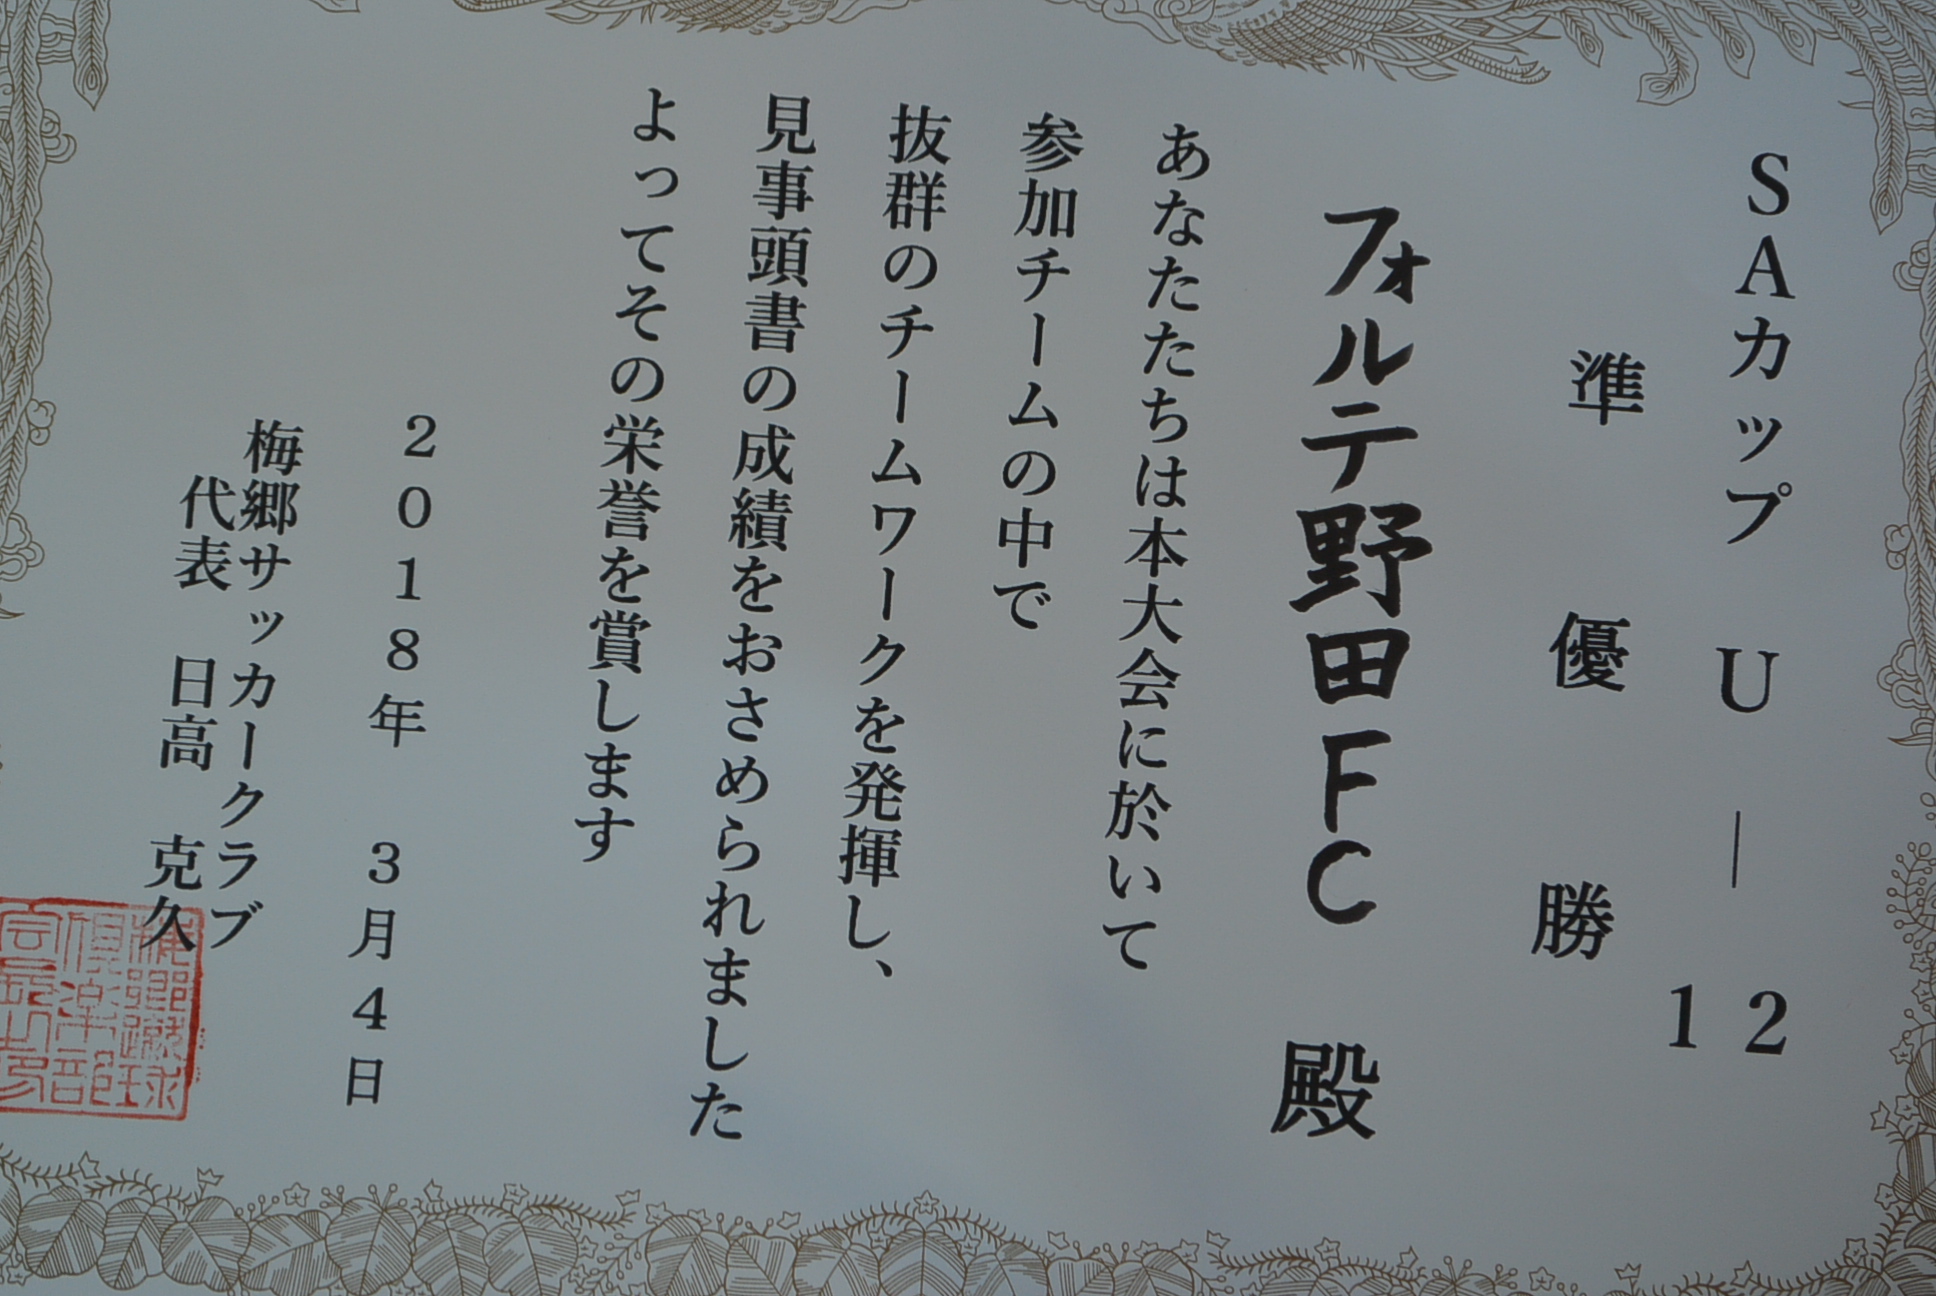 SAカップ U-12
準優勝
フォルテ野田FC 殿
あなたたちは本大会に於いて
参加チームの中で
抜群のチームワークを発揮し、
見事頭書の成績をおさめられました
よってその栄誉を賞します
2018年 3月4日
梅郷サッカークラブ
代表 日高 克久